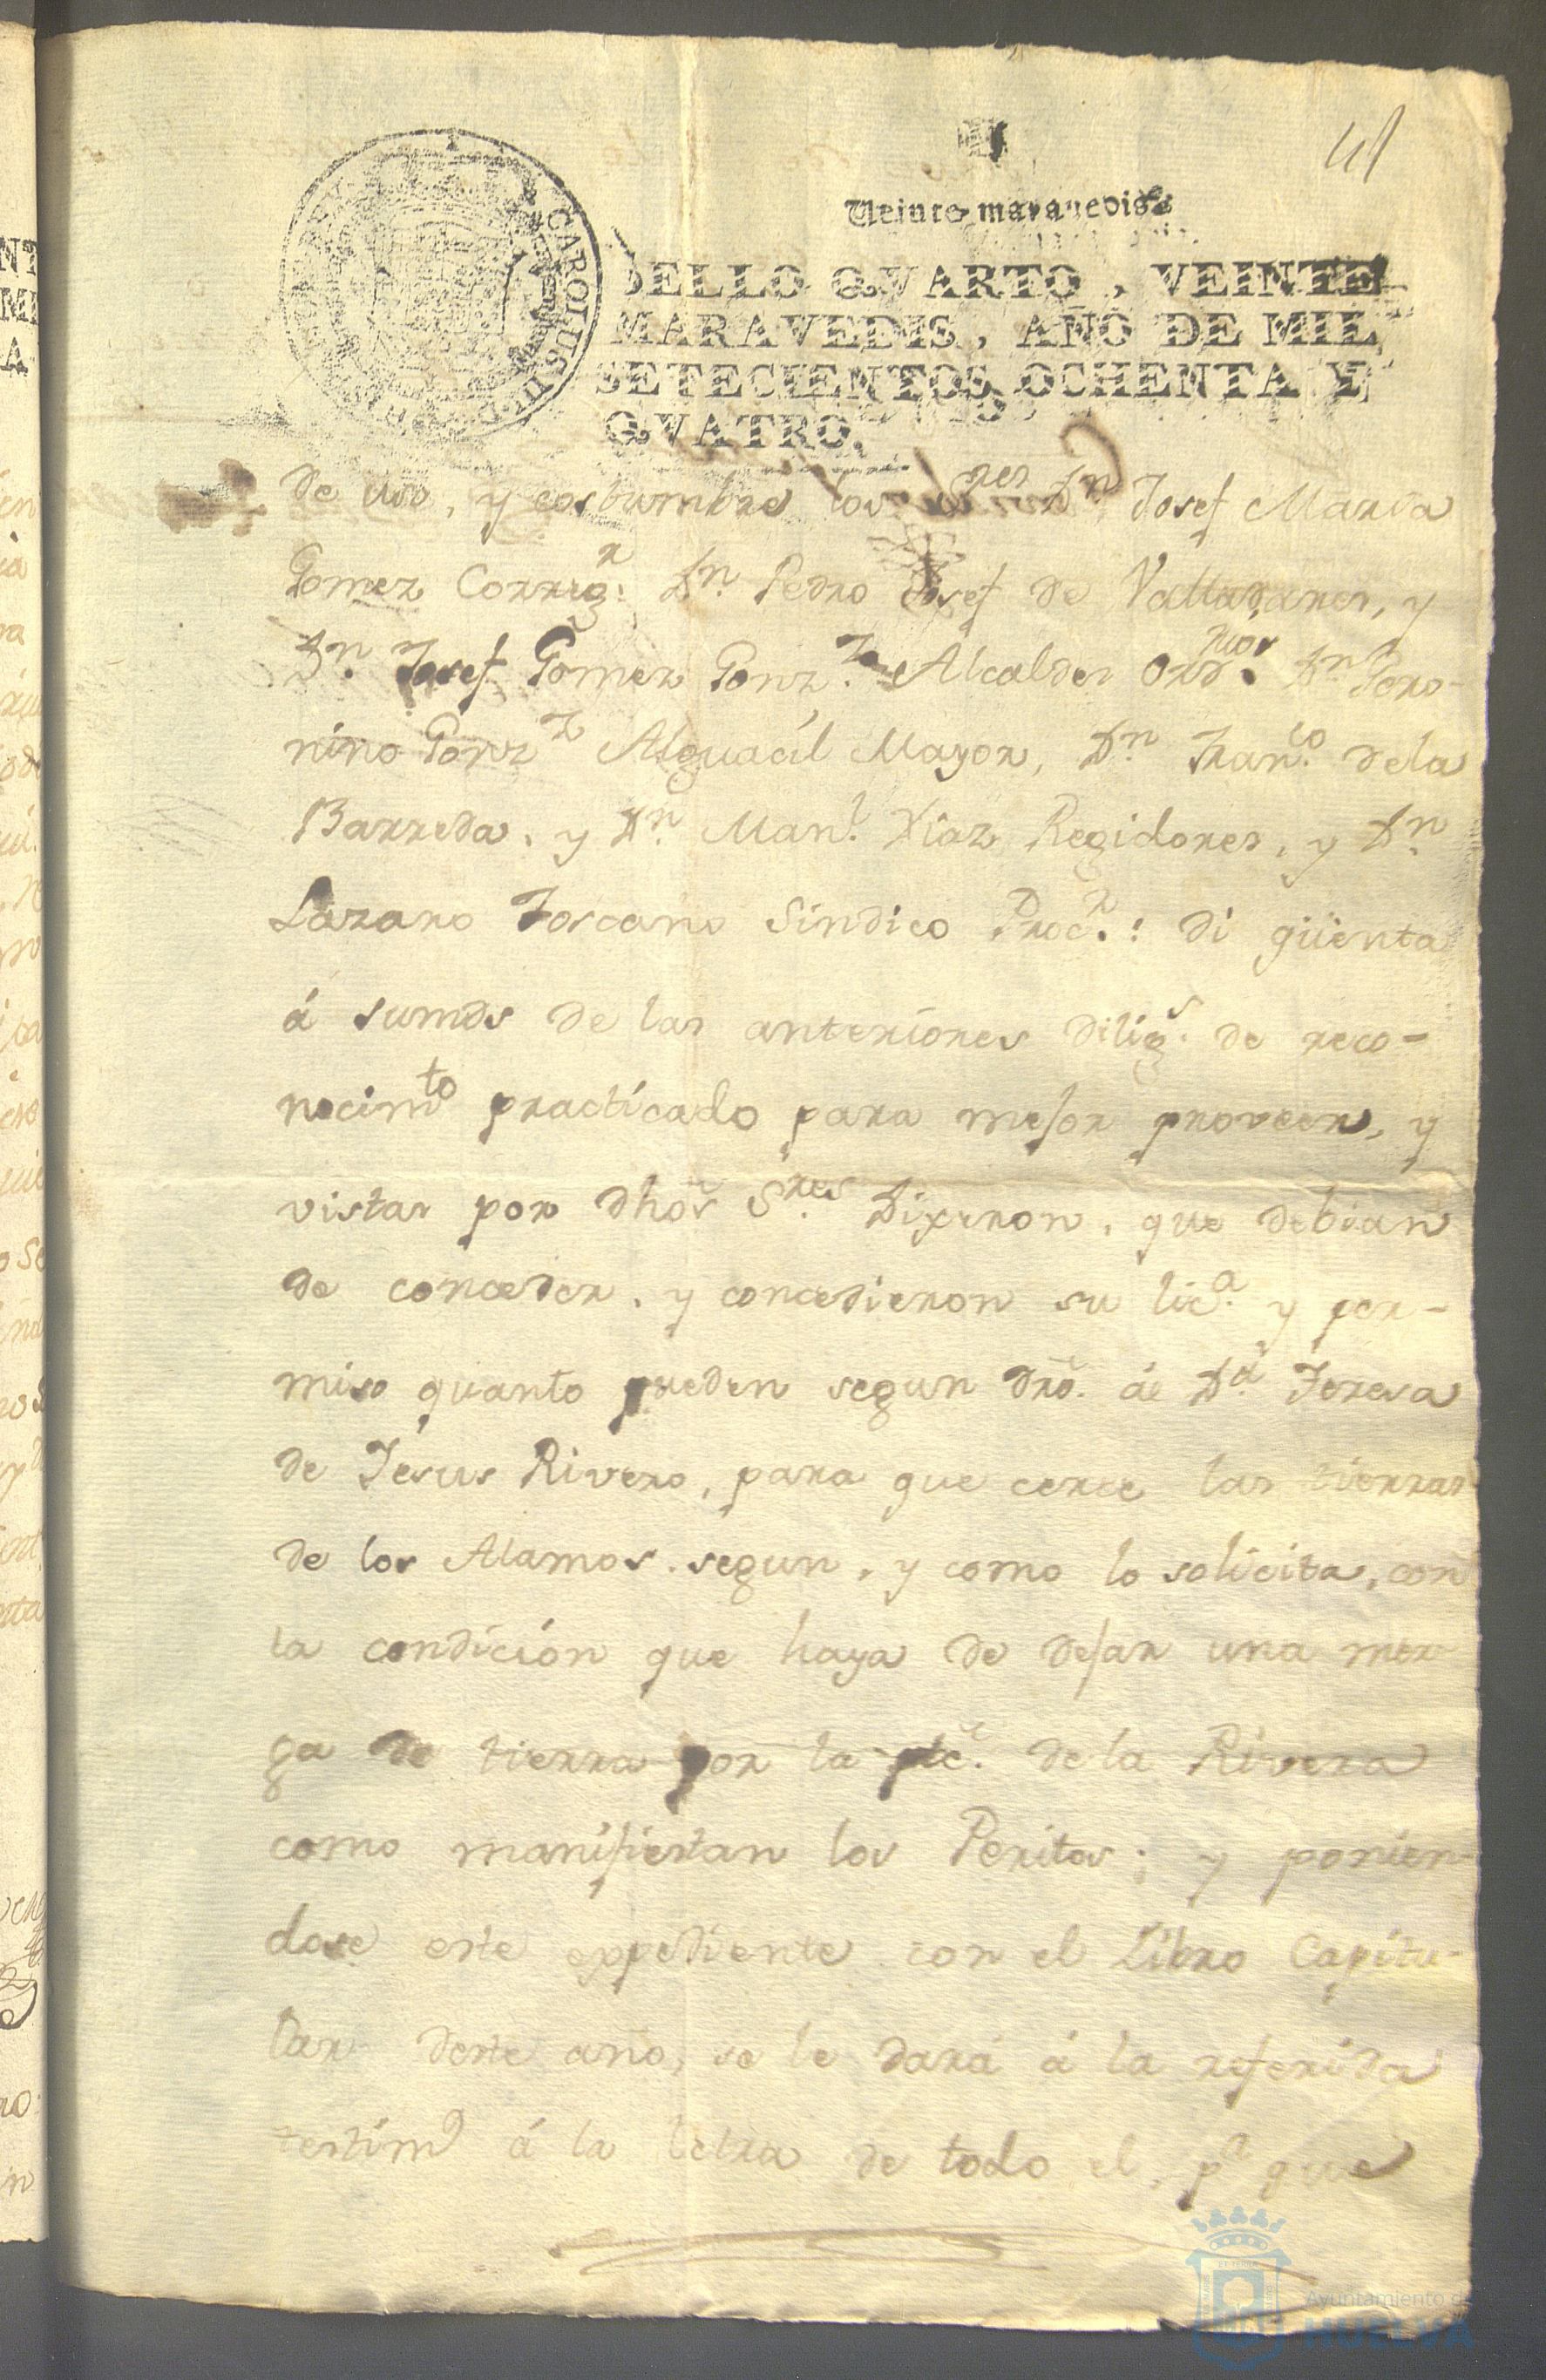 41
Veinte maravedis
SELLO QVARTO, VEINTE
MARAVEDIS, AÑO DE MIL
SETECIENTOS OCHENTA Y
QVATRO.
CAROLUS III D
de uso, y costumbre los Sres Dn. Josef Maria
Gomez Correxr. Dn. Pedro Josef de Valladares, y
Dn. Josef Gomez Gonz.z Alcaldes Ordrios. Dn Gero-
nimo Gonzz Alguacil Mayor, Dn Franco. de la
Barreda, y Dn. Manl. Diaz Regidores, y Dn.
Lazaro Toscano Sindico Procr.: di qüenta
á sumds de las anteriores diligs. de reco-
nocimto practicado para mejor proveer, y
vistas por dhos Sres Dixeron, que debian
de conceder, y concedieron su lica. y per-
miso quanto pueden segun dro. áe Da. Teresa
de Jesus Rivero, para que cerce las tierras
de los Alamos, segun, y como lo solicita, con
la condición que haya de dejar una mer-
ga de tierra por la pte. de la Rivera
como manifiestan los Peritos; y ponien-
dose este expediente con el Libro Capitu-
lar deste año, se le dará á la referida
testimo á la letra de todo el, pa que
Ayuntamiento de
HUELVA